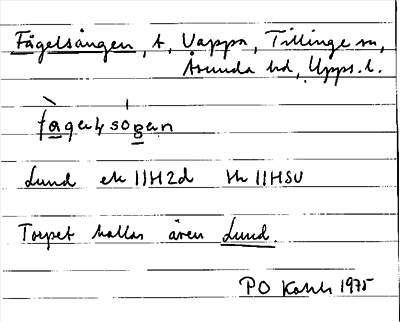 Fågelsången, t, Vappa, Tillinge sn,
Åsunda hd, Upps. l.
fågelsången
Lund ek 11H2d hk 11HSV
Torpet kallas även Lund.
PO Kahls 1975